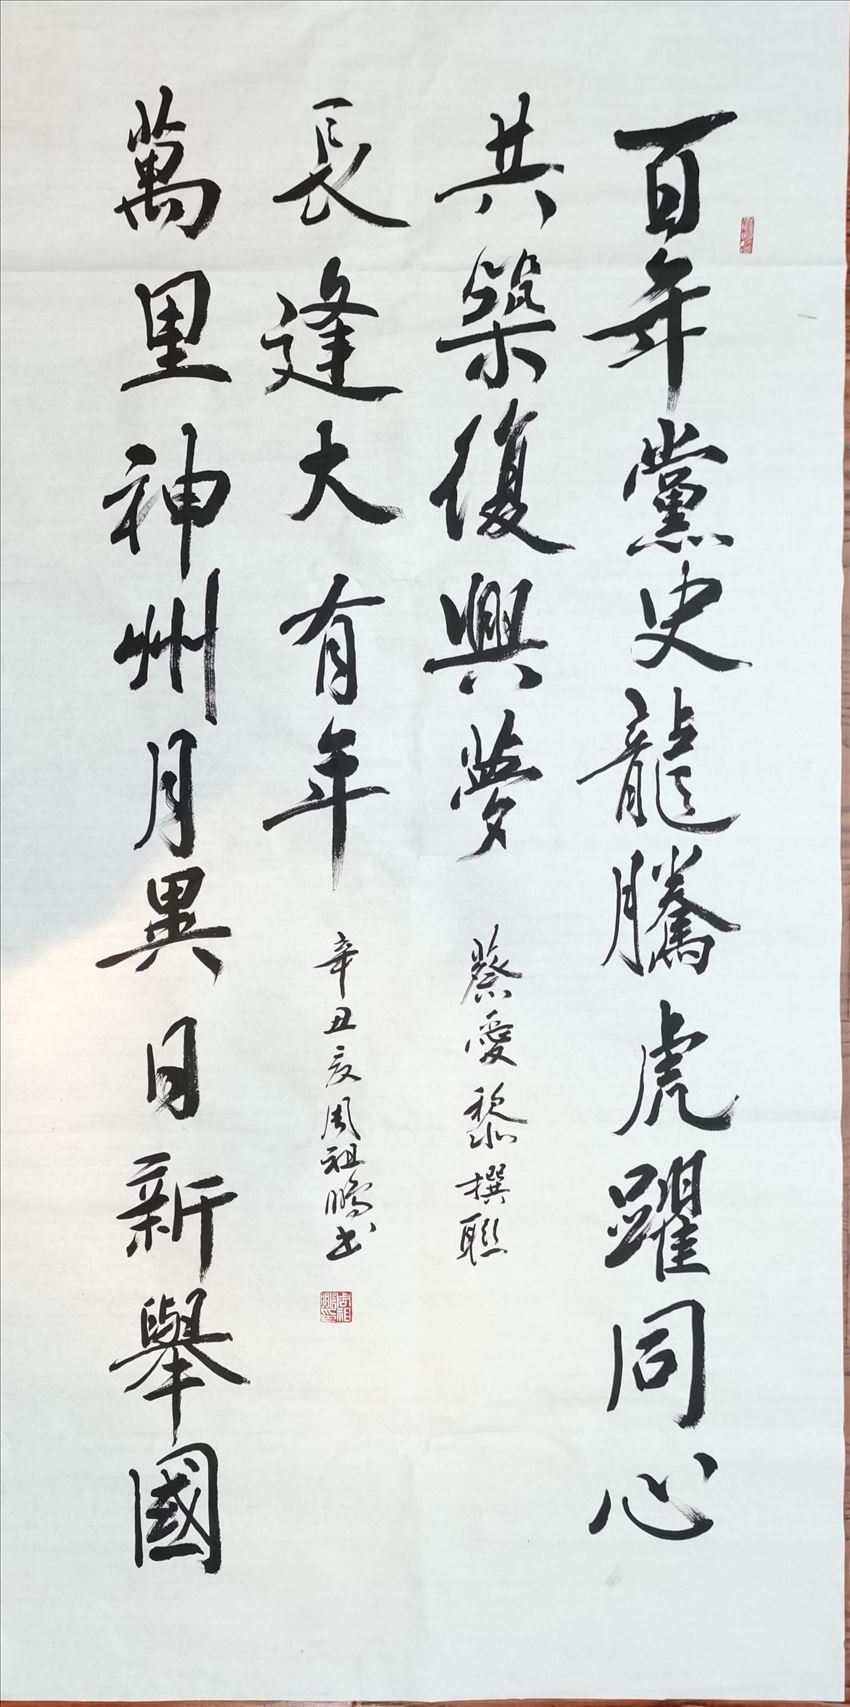 百年黨史龍騰虎躍同心
共築復興夢
蔡愛黎撰聯
萬里神州月異日新舉國
長逢大有年
辛丑夏周祖鵬書